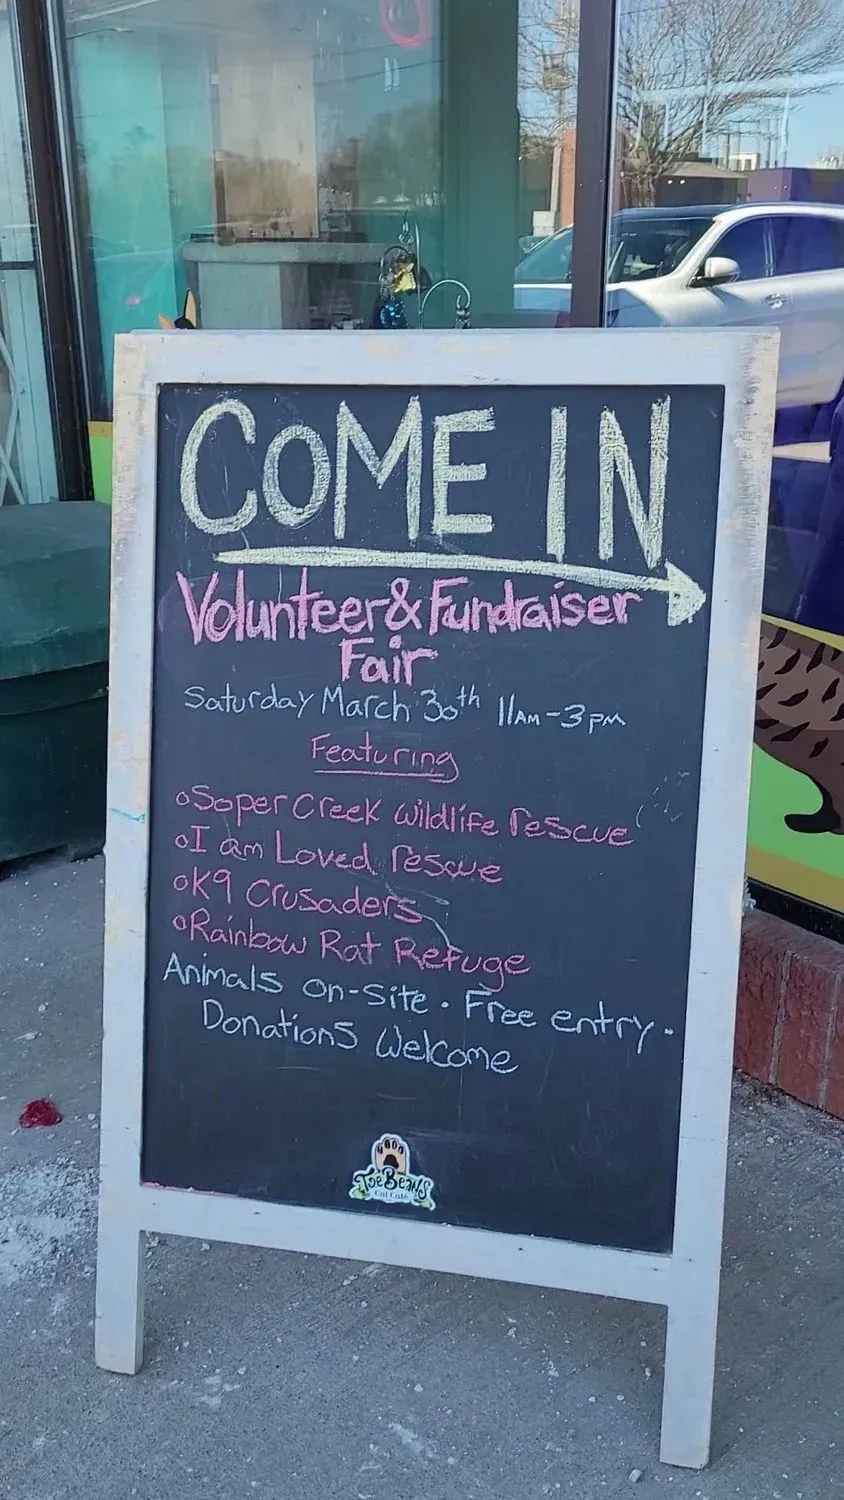 COME IN
Volunteer & Fundraiser
Fair
Saturday March 30th 11AM-3PM
Featuring
Soper Creek Wildlife rescue
I am Loved rescue
K9 Crusaders
Rainbow Rat Refuge
Animals on-site · Free entry ·
Donations Welcome
ToeBeans
Cat Café